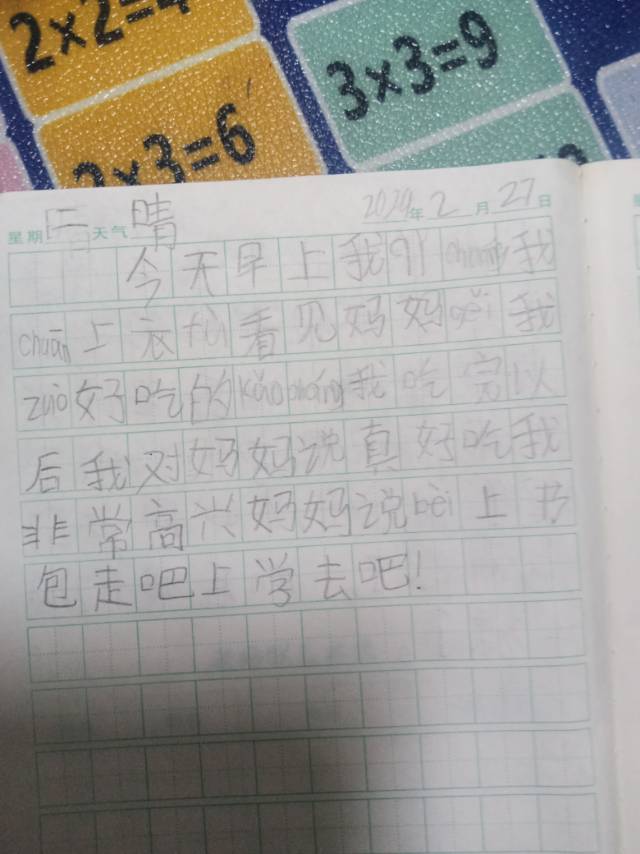 2×2=4
3×3=9
2×3=6
星期二 天气晴 年2月27日
今天早上我 我
chuān上衣fú看见妈妈gěi我
zuò好吃的 我吃完以
后我对妈妈说真好吃我
非常高兴妈妈说bēi上书
包走吧上学去吧!